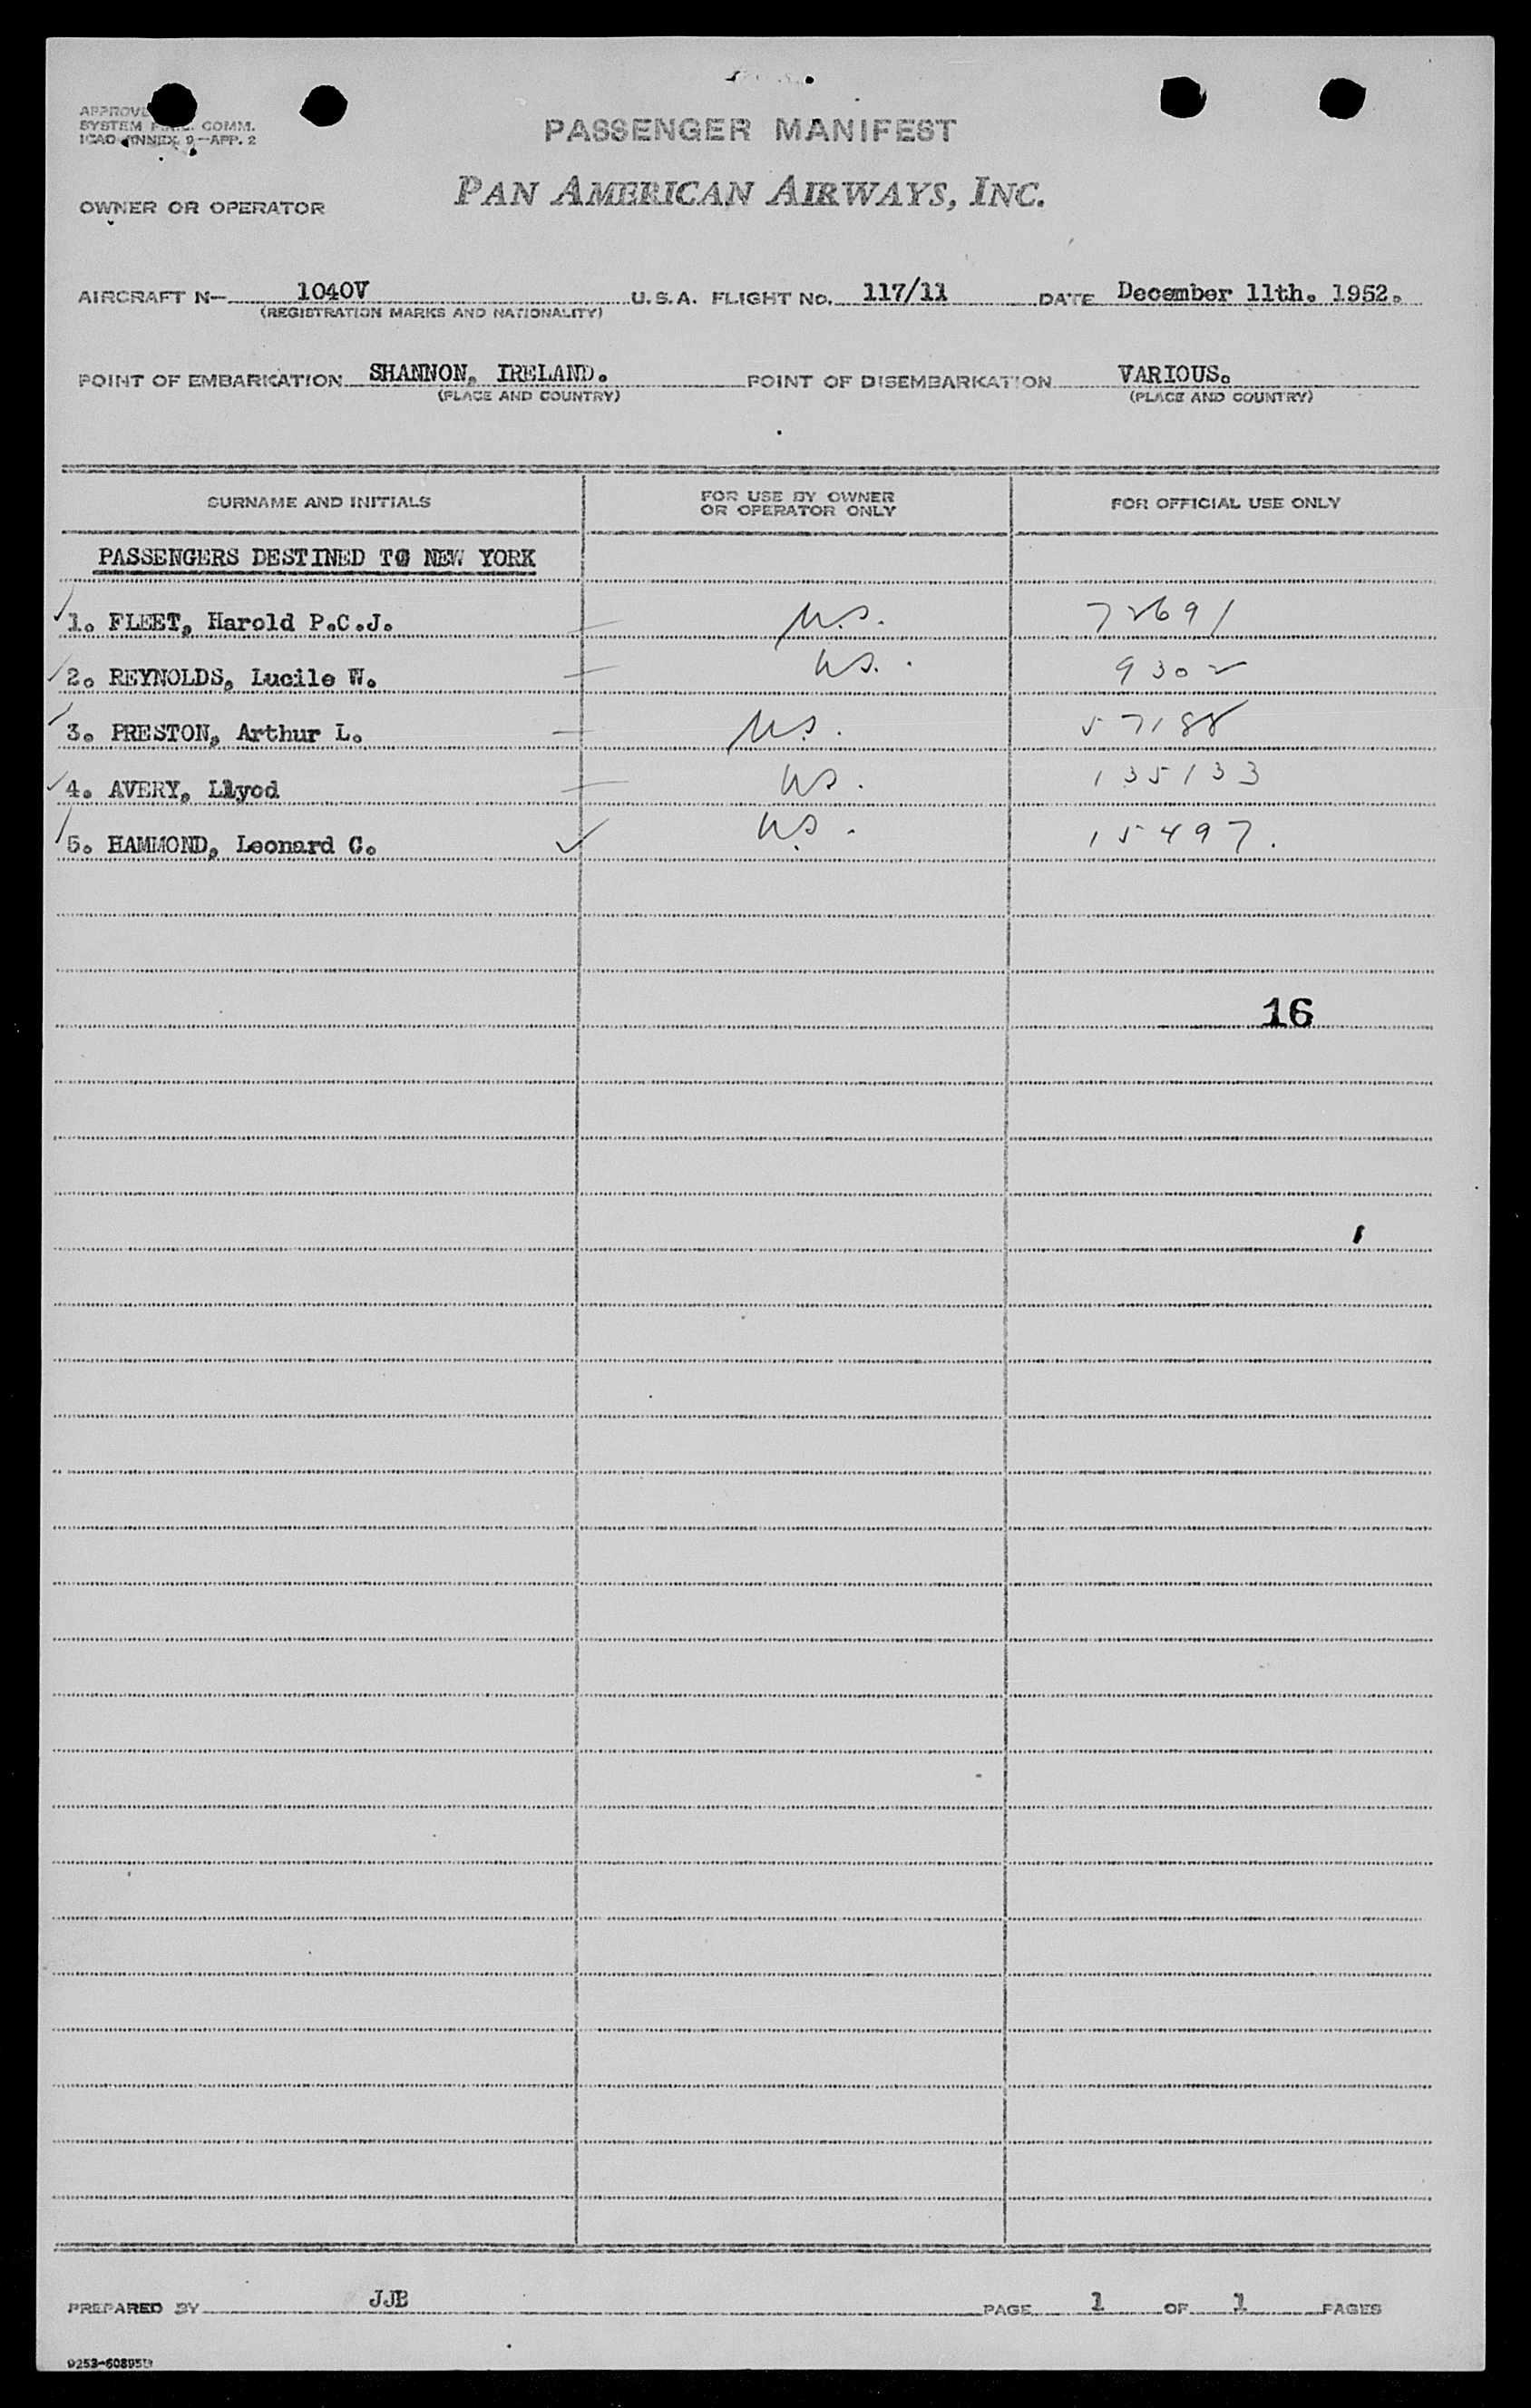 APPROVED
SYSTEM F.A.L. COMM.
ICAO ANNEX 9—APP. 2
PASSENGER MANIFEST
OWNER OR OPERATOR PAN AMERICAN AIRWAYS, INC.
AIRCRAFT N— 1040V U.S.A. FLIGHT NO. 117/11 DATE December 11th. 1952.
(REGISTRATION MARKS AND NATIONALITY)
POINT OF EMBARKATION SHANNON, IRELAND. POINT OF DISEMBARKATION VARIOUS.
(PLACE AND COUNTRY) (PLACE AND COUNTRY)
SURNAME AND INITIALS FOR USE BY OWNER OR OPERATOR ONLY FOR OFFICIAL USE ONLY
PASSENGERS DESTINED TO NEW YORK
1. FLEET, Harold P.C.J. U.S. 72691
2. REYNOLDS, Lucile W. U.S. 9302
3. PRESTON, Arthur L. U.S. 57188
4. AVERY, Llyod U.S. 135133
5. HAMMOND, Leonard C. U.S. 15497.
16
PREPARED BY JJB PAGE 1 OF 1 PAGES